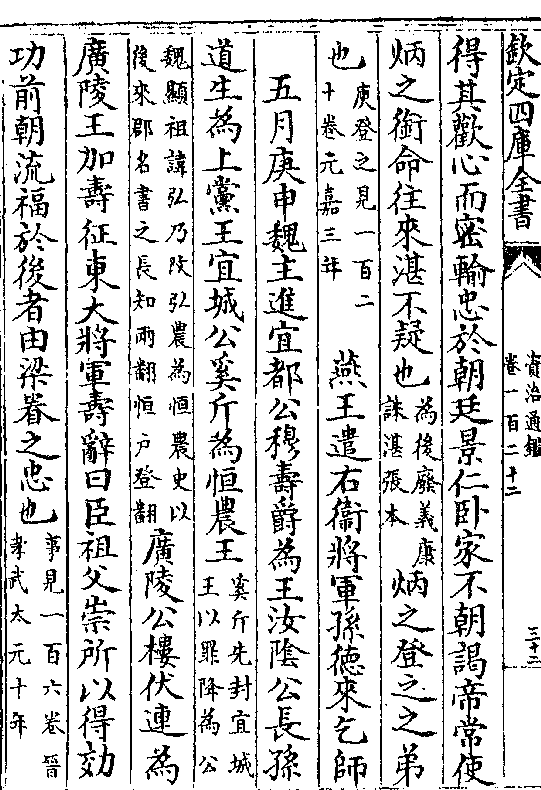 欽定四庫全書
資治通鑑
卷一百二十二
三十二
得其歡心而密輸忠於朝廷景仁卧家不朝謁帝常使
炳之銜命往來湛不疑也為後廢義康誅湛張本炳之登之之弟
也庾登之見一百二十卷元嘉三年燕王遣右衛將軍孫德來乞師
五月庚申魏主進宜都公穆壽爵為王汝陰公長孫
道生為上黨王宜城公奚斤為恒農王奚斤先封宜城王以罪降為公
魏顯祖諱弘乃改弘農為恒農史以後來郡名書之長知兩翻恒户登翻廣陵公樓伏連為
廣陵王加壽征東大將軍壽辭曰臣祖父崇所以得効
功前朝流福於後者由梁眷之忠也事見一百六卷晉孝武太元十年